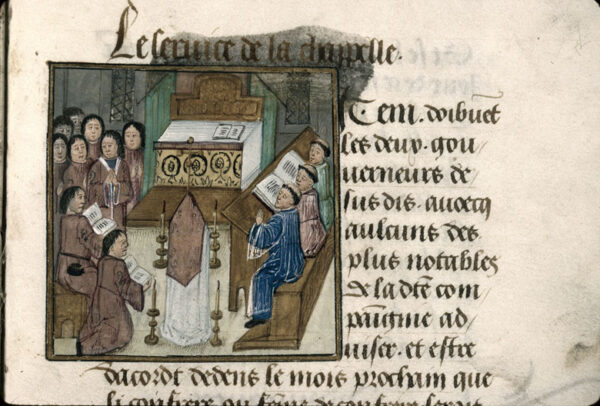 Le seruice de la chappelle.
Item. doibuēt
les deux. gou
uerneurs de
sus dis. auoecq
aulcuns des
plus notables
de la dc̄e com
paingnie ad
uiser. et estre
dacordt dedens le mois procham que
si confrere ou